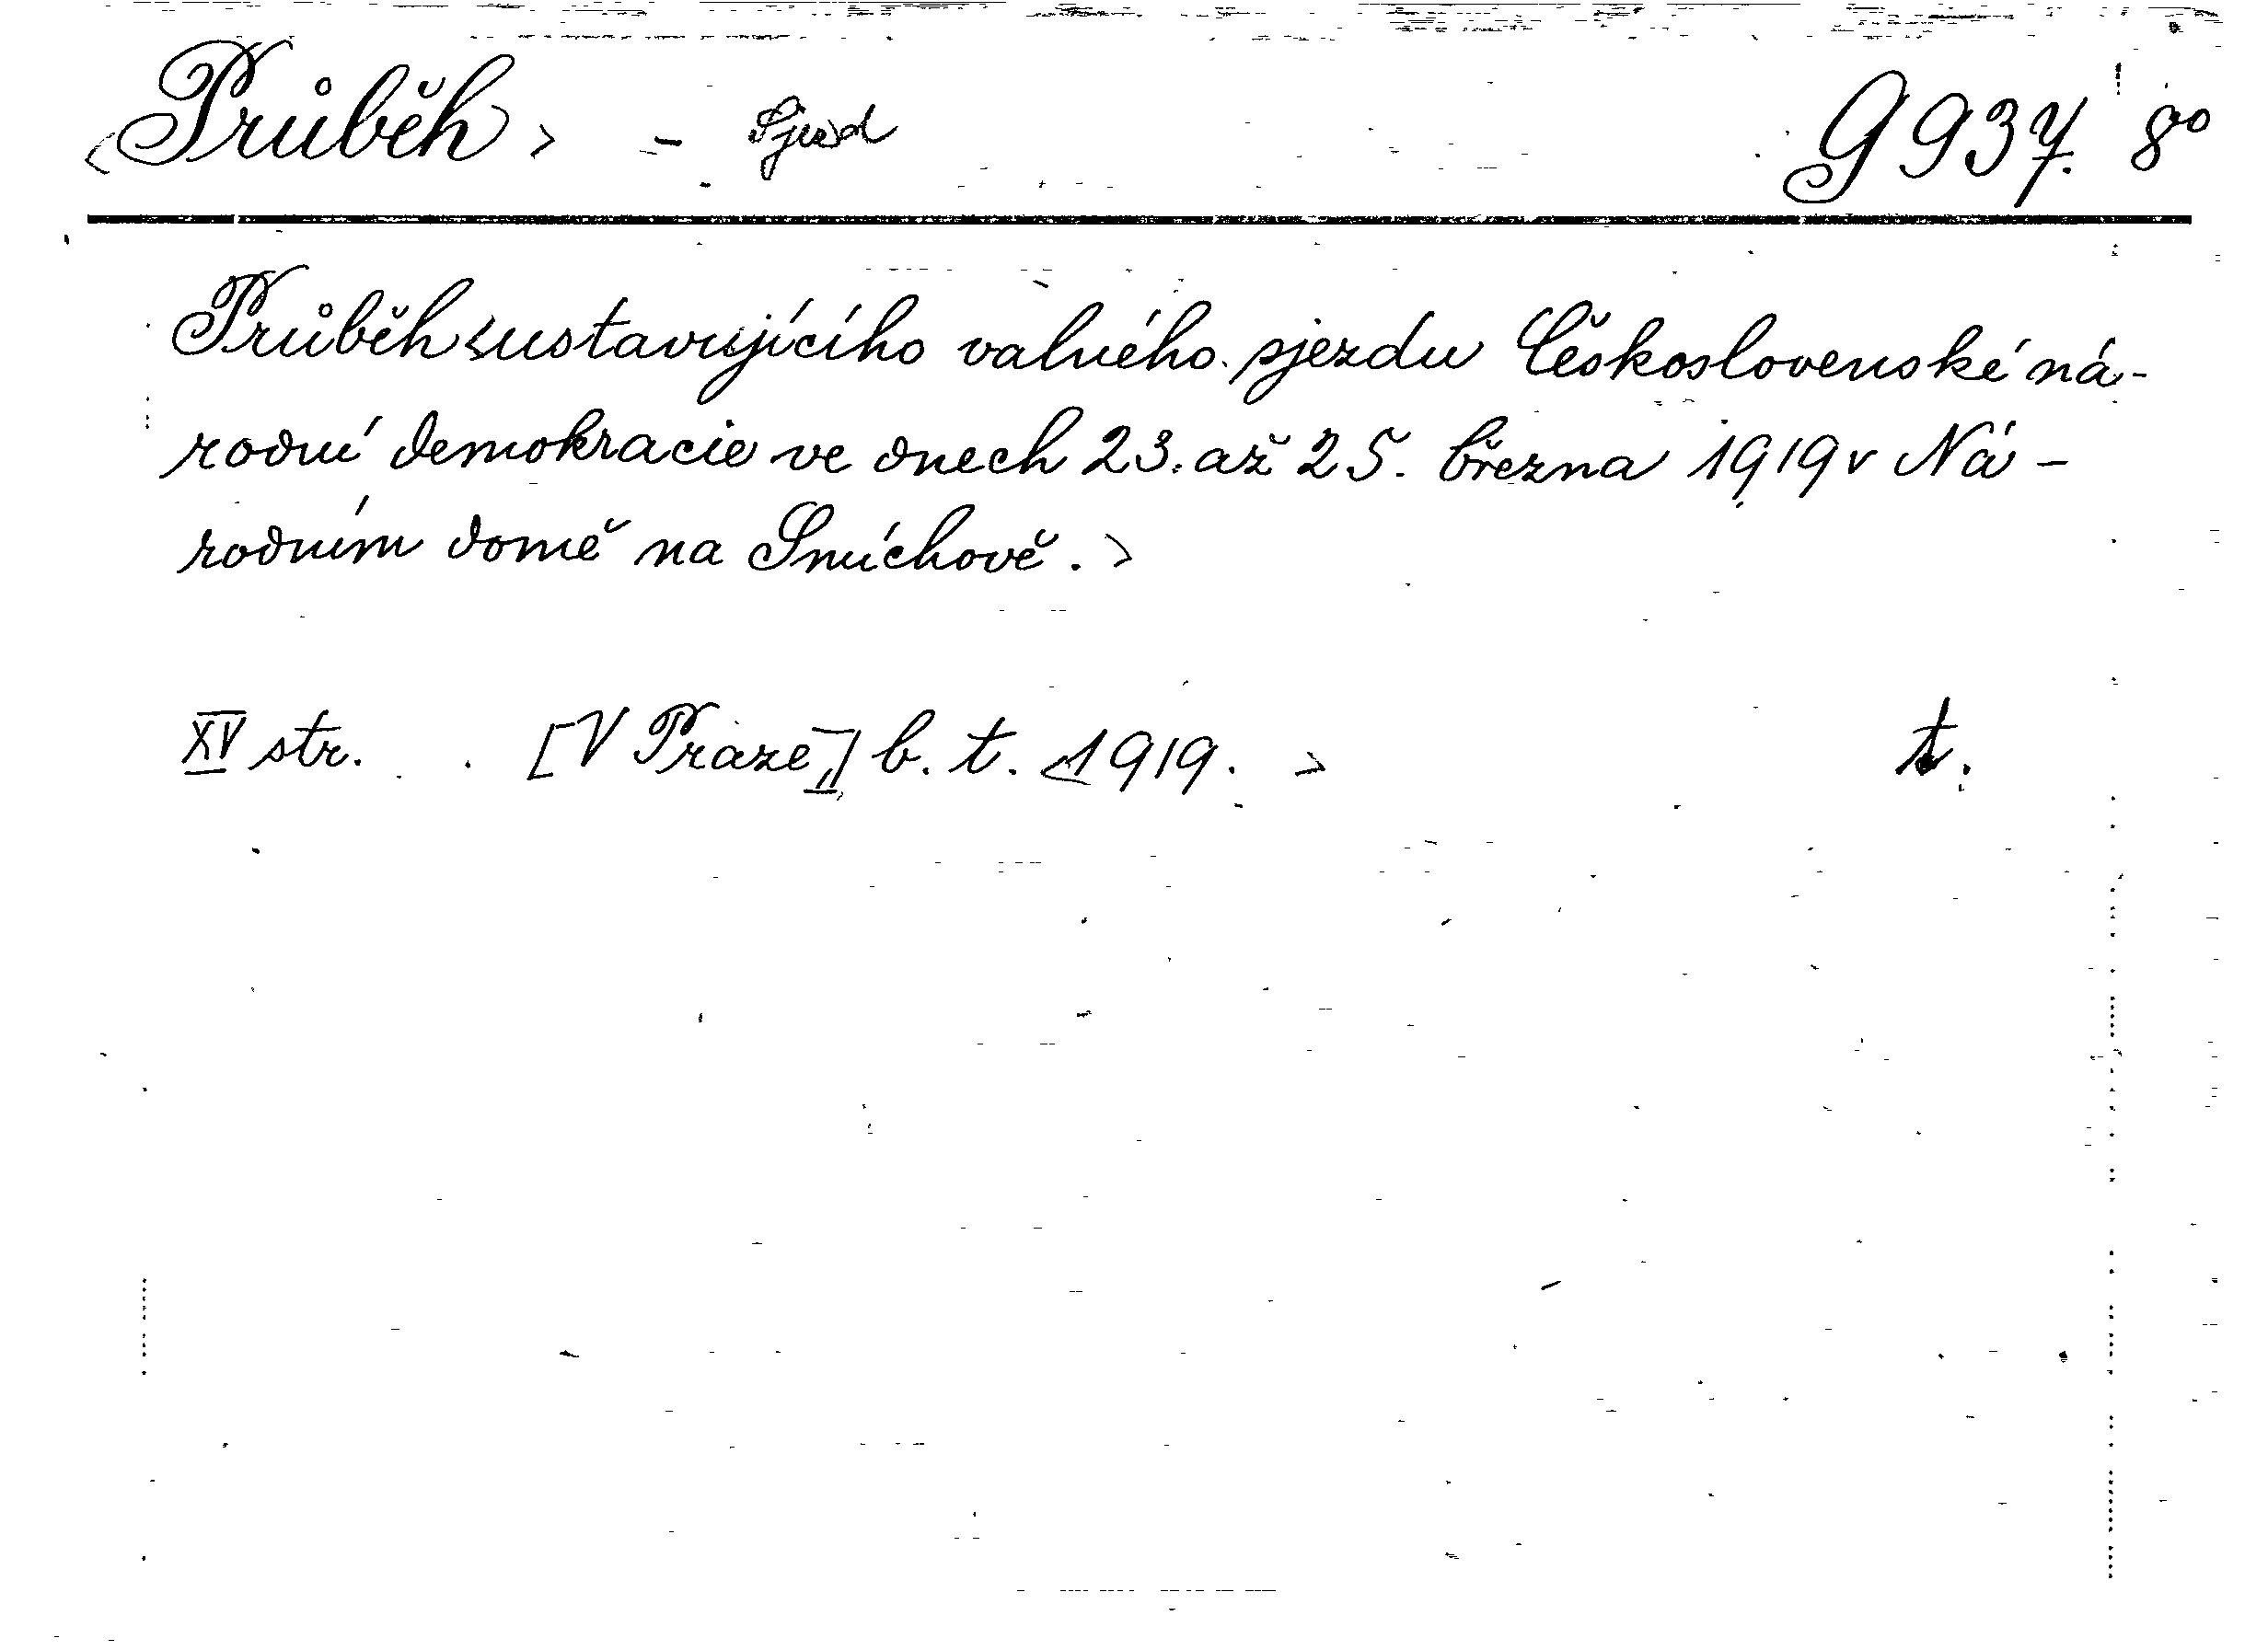 <Průběh> - Sjezd G 937. 8°
Průběh <ustavujícího valného sjezdu Československé ná-
rodní demokracie ve dnech 23. až 25. března 1919 v Ná-
rodním domě na Smíchově.>
XV str. [V Praze,] b. t. <1919.> t.